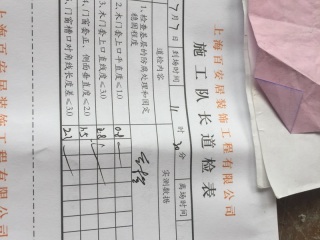 上海百安居装饰工程有限公司
施工队长道检表
7月7日 到场时间 11时30分 离场时间
道检内容 实测数据
1、检查基层的防腐处理和固定
稳固程度
2、木门套上口平直度≤1.0 0.8
3、木门套上口直线度≤3.0 2.8
4、门窗套正、侧面垂直度 2.5
4、门窗槽口对角线长度差≤3.0 2.1
上海百安居装饰工程有限公司